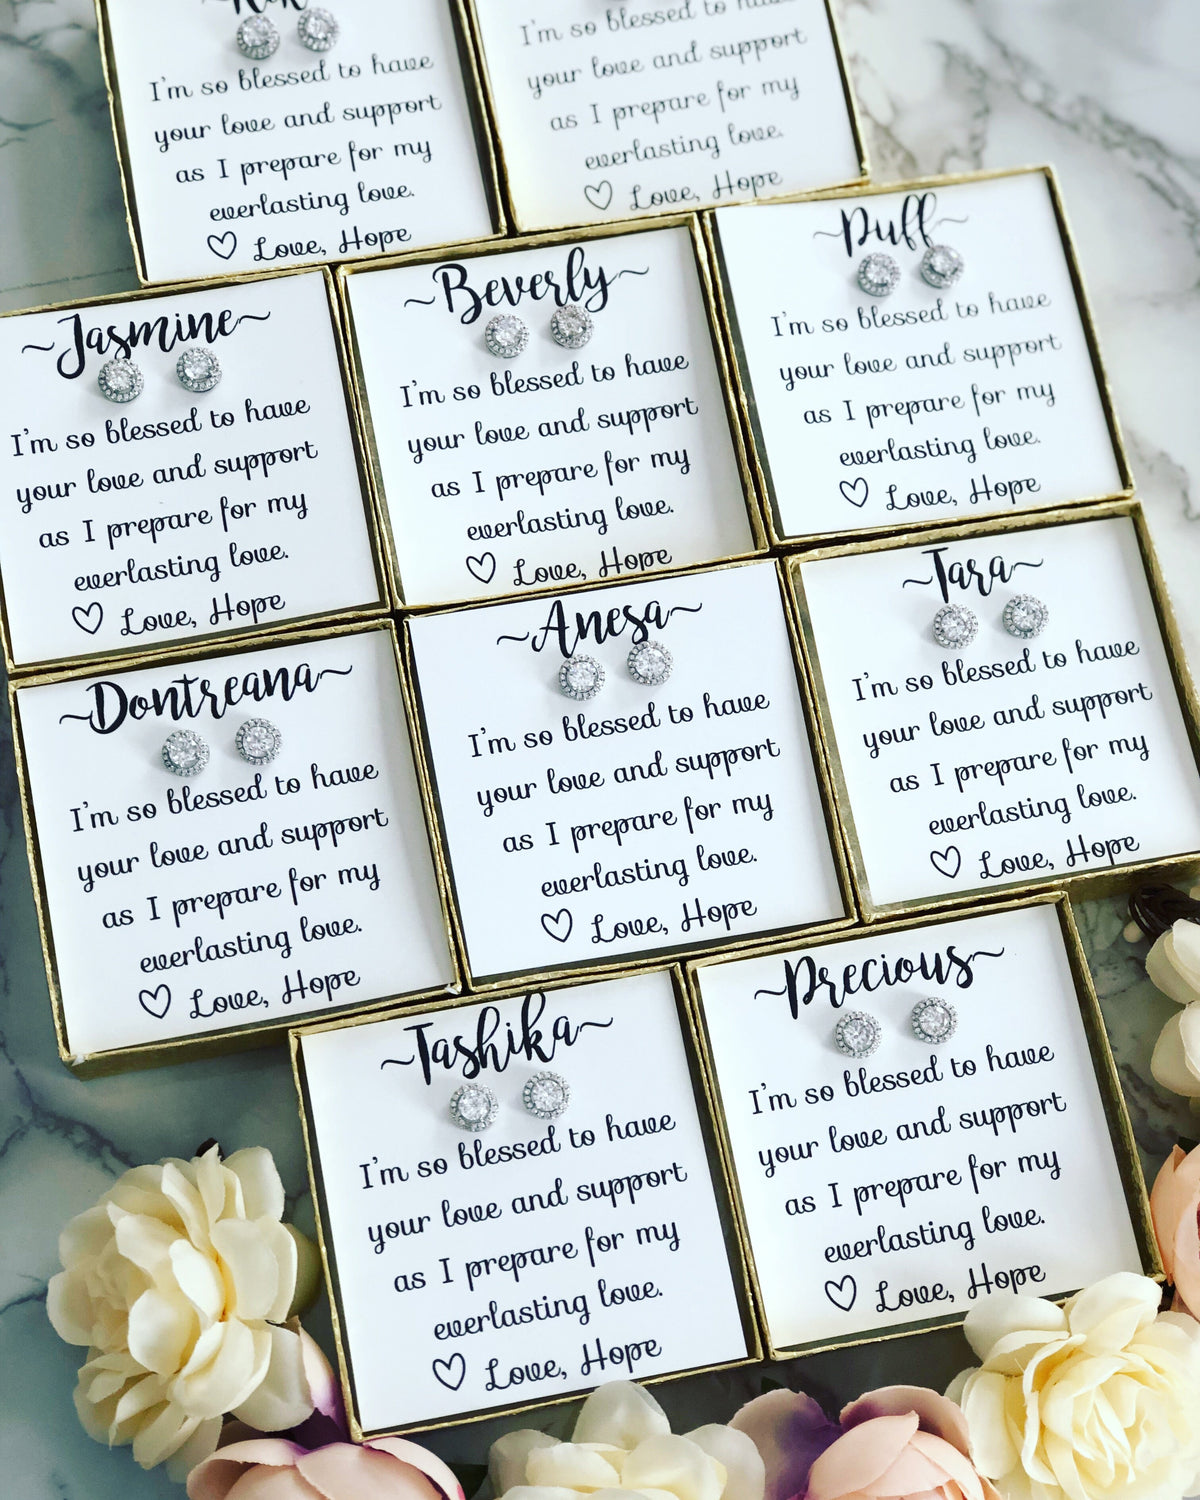 I'm so blessed to have
your love and support
as I prepare for my
everlasting love.
♡ Love, Hope
I'm so blessed to have
your love and support
as I prepare for my
everlasting love.
♡ Love, Hope
~Jasmine~
I'm so blessed to have
your love and support
as I prepare for my
everlasting love.
♡ Love, Hope
~Beverly~
I'm so blessed to have
your love and support
as I prepare for my
everlasting love.
♡ Love, Hope
~Puff~
I'm so blessed to have
your love and support
as I prepare for my
everlasting love.
♡ Love, Hope
~Dontreana~
I'm so blessed to have
your love and support
as I prepare for my
everlasting love.
♡ Love, Hope
~Anesa~
I'm so blessed to have
your love and support
as I prepare for my
everlasting love.
♡ Love, Hope
~Tara~
I'm so blessed to have
your love and support
as I prepare for my
everlasting love.
♡ Love, Hope
~Tashika~
I'm so blessed to have
your love and support
as I prepare for my
everlasting love.
♡ Love, Hope
~Precious~
I'm so blessed to have
your love and support
as I prepare for my
everlasting love.
♡ Love, Hope